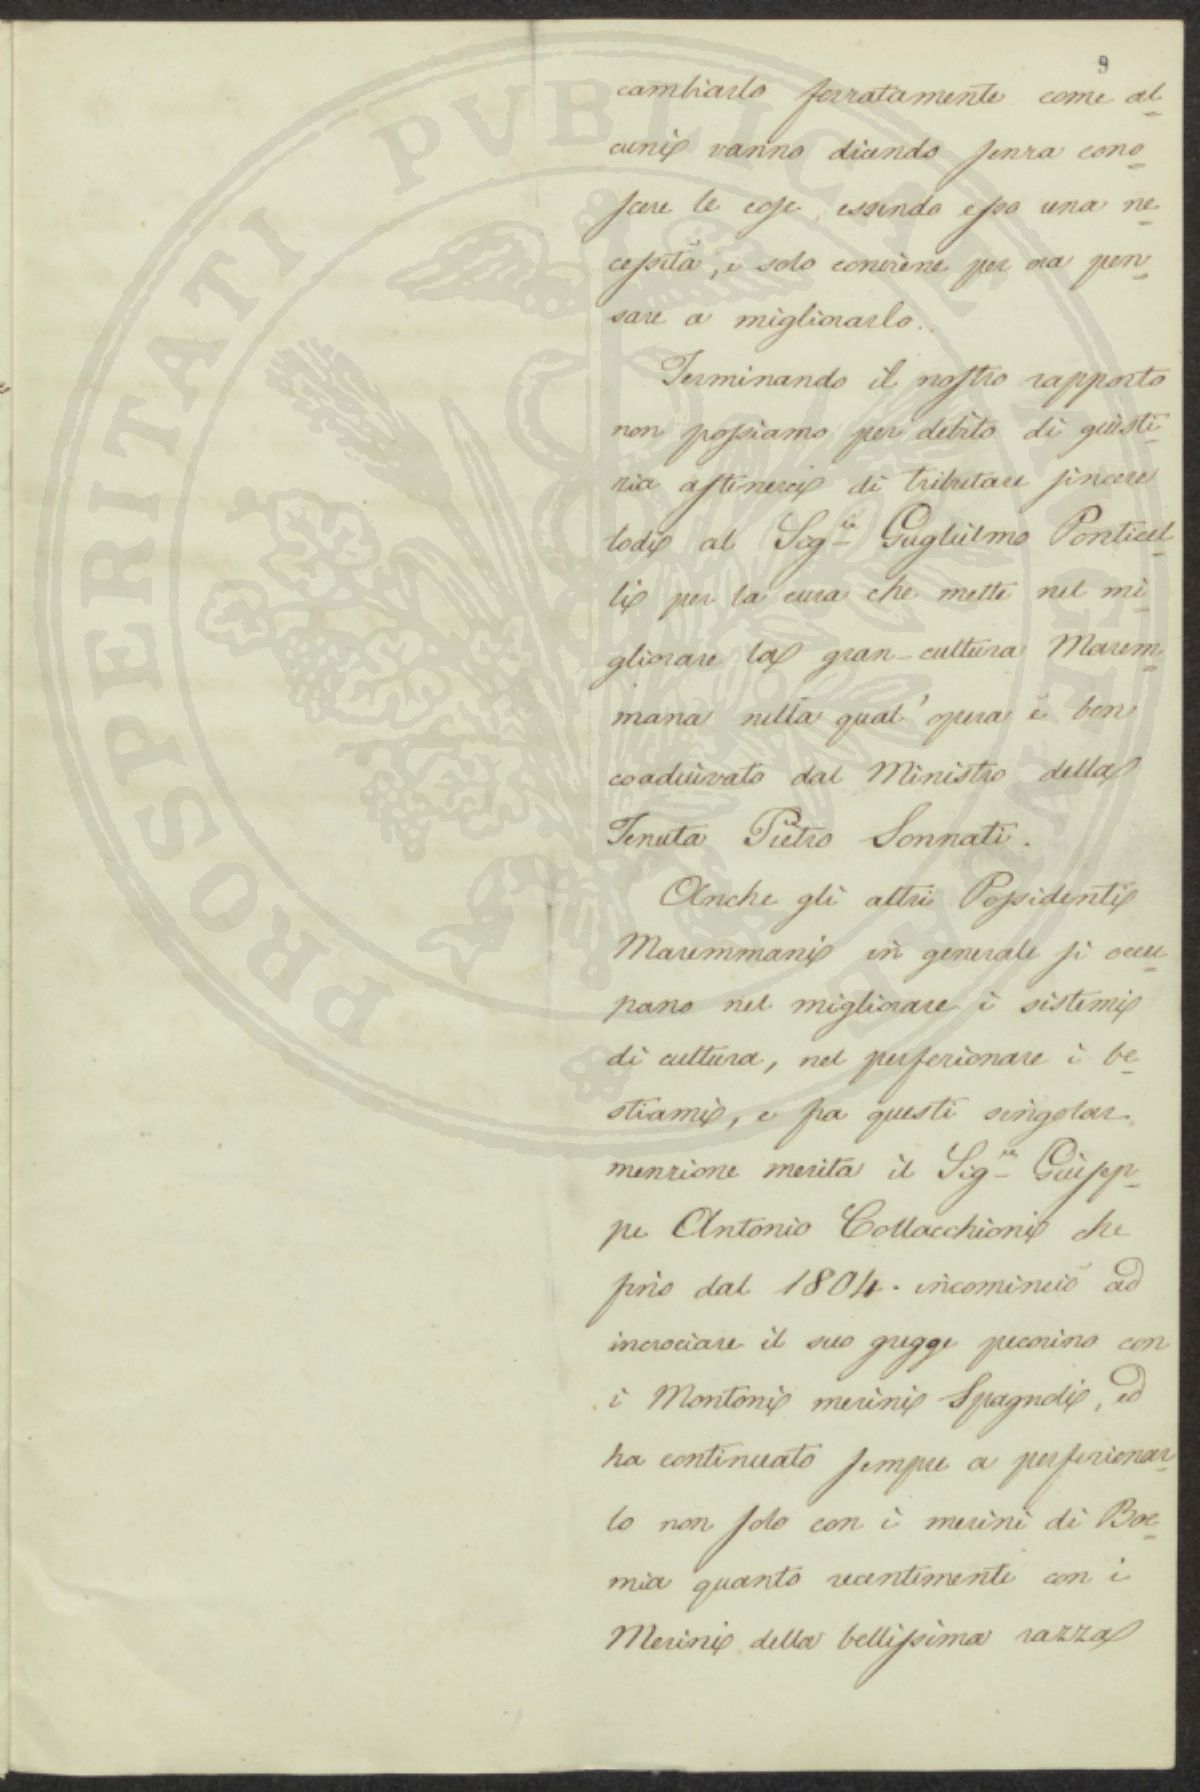 9
cambiarlo forzatamente come al=
cuni vanno dicendo senza cono=
scere le cose, essendo esso una ne=
cessità, e solo conviene per ora pen=
sare a migliorarlo.
Terminando il nostro rapporto
non possiamo per debito di giusti=
zia astenerci di tributare sincere
lodi al Sig.re Guglielmo Ponticel=
li per la cura che mette nel mi=
gliorare la gran-cultura Marem=
mana nella qual' opera è ben
coadiuvato dal Ministro della
Tenuta Pietro Sonnati.
Anche gli altri Possidenti
Maremmani in generale si occu=
pano nel migliorare i sistemi
di cultura, nel perfezionare i be=
stiami, e fra questi singolar
menzione merita il Sig.re Giusep=
pe Antonio Collacchioni che
fino dal 1804. incominciò ad
incrociare il suo gregge pecorino con
i Montoni merini Spagnoli, ed
ha continuato sempre a perfezionar=
lo non solo con i merini di Boe=
mia quanto recentemente con i
Merini della bellissima razza
PROSPERITATI PVBLICAE AVGENDAE